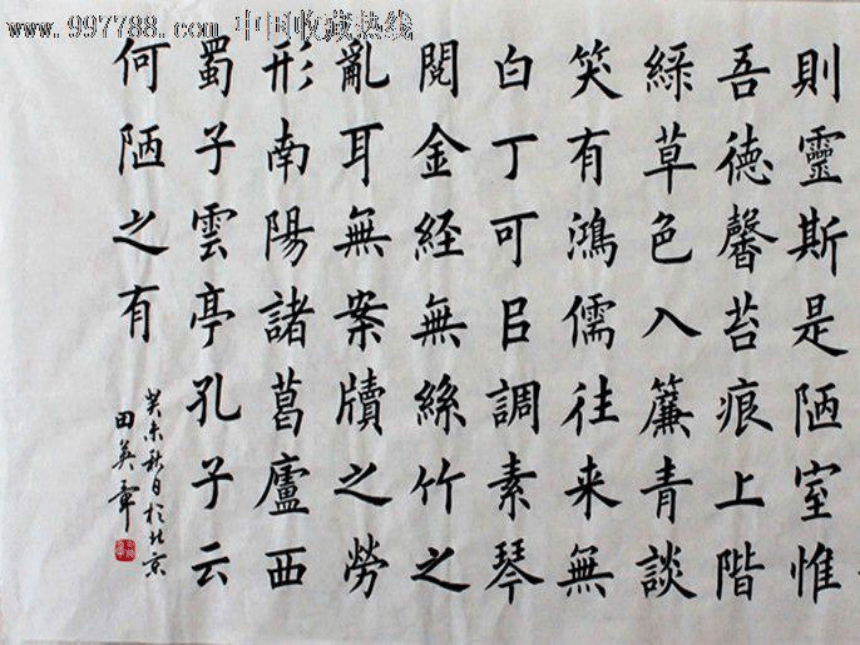 www.997788.com 中国收藏热线
則靈斯是陋室惟
吾德馨苔痕上階
綠草色入簾青談
笑有鴻儒往来無
白丁可㠯調素琴
閱金経無絲竹之
亂耳無案牘之勞
形南陽諸葛廬西
蜀子雲亭孔子云
何陋之有
癸未秋日於北京
田英章